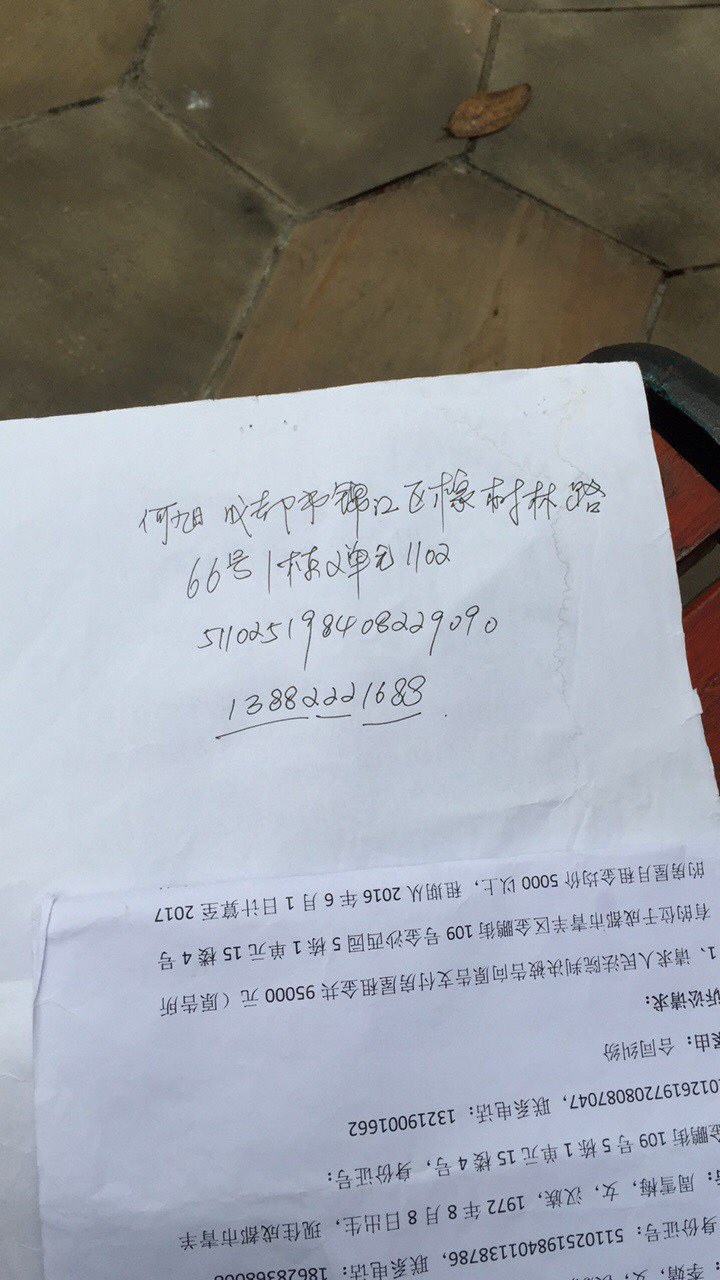 何旭 成都市锦江区橡树林路
66号1栋2单元1102
511025198408229090
13882221688
李婧，女，
身份证号：511025198401138786，联系电话：18628368008
：周雪梅，女，汉族，1972年8月8日出生，现住成都市青羊
金鹏街109号5栋1单元15楼4号，身份证号：
0126197208087047，联系电话：13219001662
案由：合同纠纷
诉讼请求：
1、请求人民法院判决被告向原告支付房屋租金共95000元（原告所
有的位于成都市青羊区金鹏街109号金沙西园5栋1单元15楼4号
的房屋月租金均价5000以上，租期从2016年6月1日计算至2017